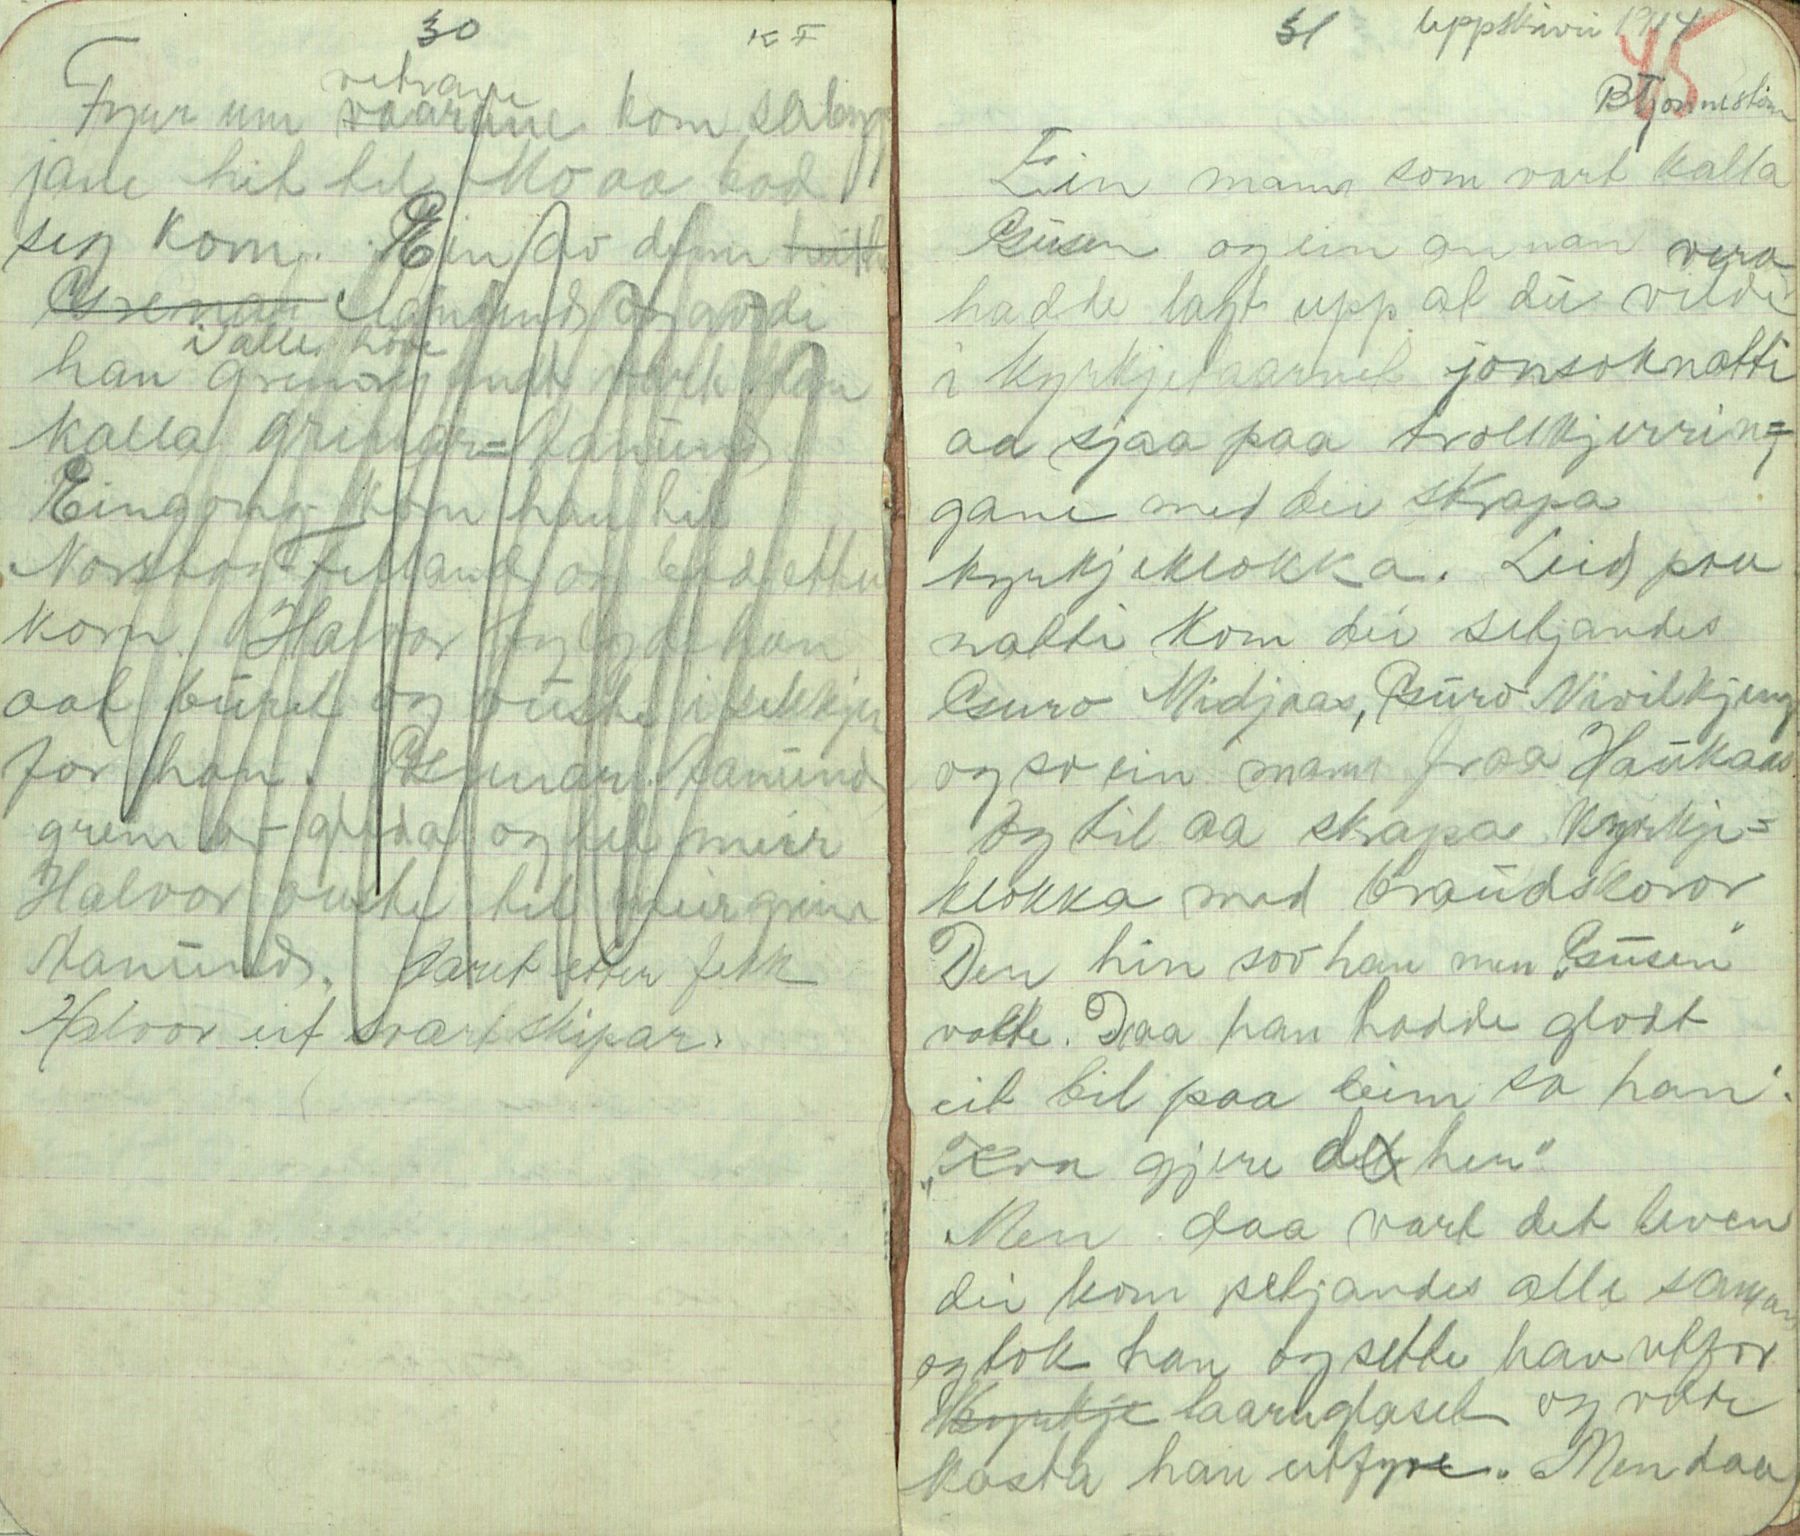 30 K F
vetrane
Fyrr um vaarane kom sætbygg
jane hit til Mo aa bad
seg korn. Ein av deim heitte
Grenar Aanund og avdi
i alle hove
han grein og andt vart han
kalla Grinar= Aanund
Eingong kom han til
Norstog Felland og bad etter
korn. Halvor fylgde han
aat buret og auste i sekkjen
for han. Grenar Aanund
grein av gleda og til meir
Halvor auste til meir grein
Aanund. Aaret etter fekk
Halvor eit svært skipar.
31 Uppskrivi 1914
45
B Tjønnestøm
Ein mann som vart kalla
Gusen og ein annan
hadde lagt upp at dei vilde vera
i kyrkjetaarnet jonsoknatti
aa sjaa paa trollkjerrin=
gane med dei skrapa
kyrkjeklokka. Leid paa
natti kom dei setjandes
Guro Midjaas, Guro Nivilkjeng
og so ein mann fraa Haukaas
og til aa skrapa kyrkje=
klokka med braudskoror
Den hin sov han men "Gusen"
vakte. Daa han hadde glodt
eit bil paa beim sa han:
"Kva gjere de her"
Men daa vart det leven
dei kom setjandes alle saman
og tok han og sette han utfor
Kyrkje taarnglaset og vilde
kasta han utfyre. Men daa